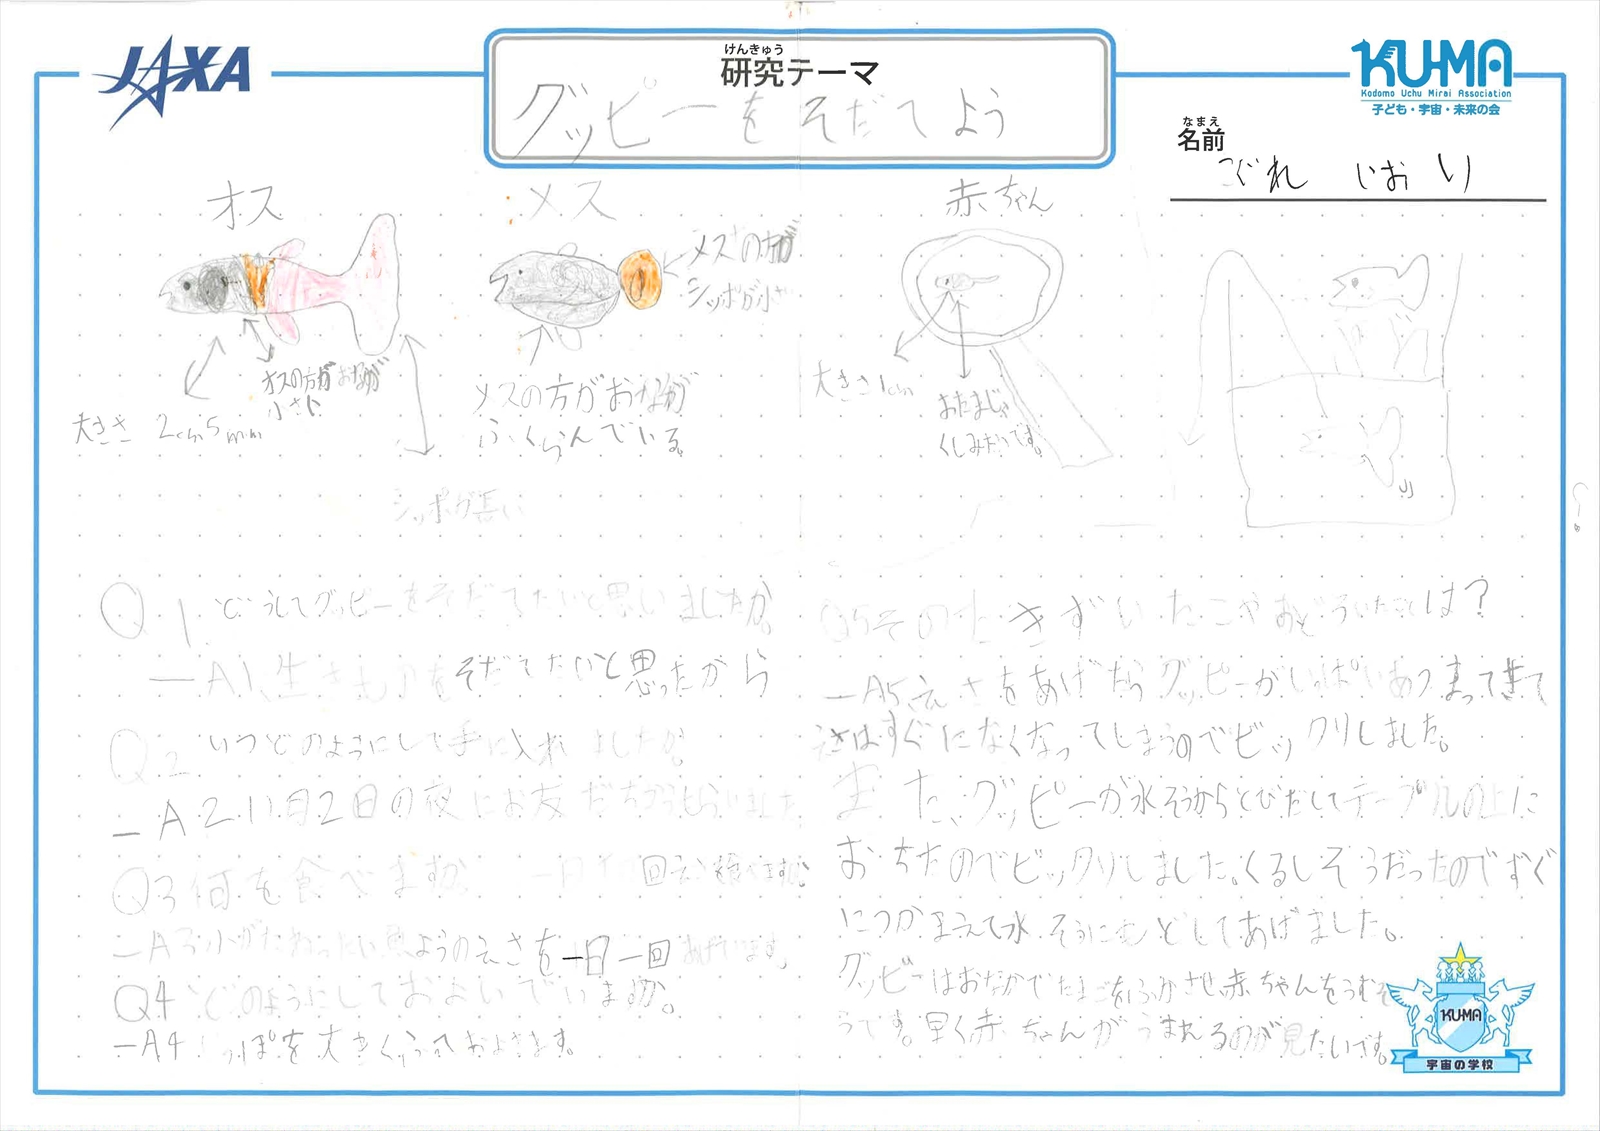 JAXA
けんきゅう
研究テーマ
グッピーをそだてよう
KU-MA
Kodomo Uchu Mirai Association
子ども・宇宙・未来の会
なまえ
名前
こぐれ いおり
オス
大きさ 2cm5mm
オスの方がおなかが
小さい
シッポが長い
メス
メスの方が
シッポが小さ
メスの方がおなかが
ふくらんでいる。
赤ちゃん
大きさ1cm
おたまじゃ
くしみたいです。
Q1 どうしてグッピーをそだてたいと思いましたか。
ーA1、生きものをそだてたいと思ったから
Q2 いつどのようにして手に入れましたか。
ーA2.11月2日の夜にお友だちからもらいました
Q3何を食べますか
回えさを食べますか。
ーA3小がたねったい魚ようのえさを一日一回あげています。
Q4 どのようにしておよいでいますか。
ーA4 しっぽを大きくふっておよぎます。
Q5その たきずいたことやおどろいたことは？
ーA5えさをあげたらグッピーがいっぱいあつまってきて
えさはすぐになくなってしまうのでビックリしました。
また、グッピーが水そうからとびだしてテーブルの上に
おちたのでビックリしました。くるしそうだったのですぐ
につかまえて水そうにもどしてあげました。
グッピーはおなかでたまごをふかさせ赤ちゃんをうむそ
うです。早く赤ちゃんがうまれるのが見たいです。
KUMA
宇宙の学校